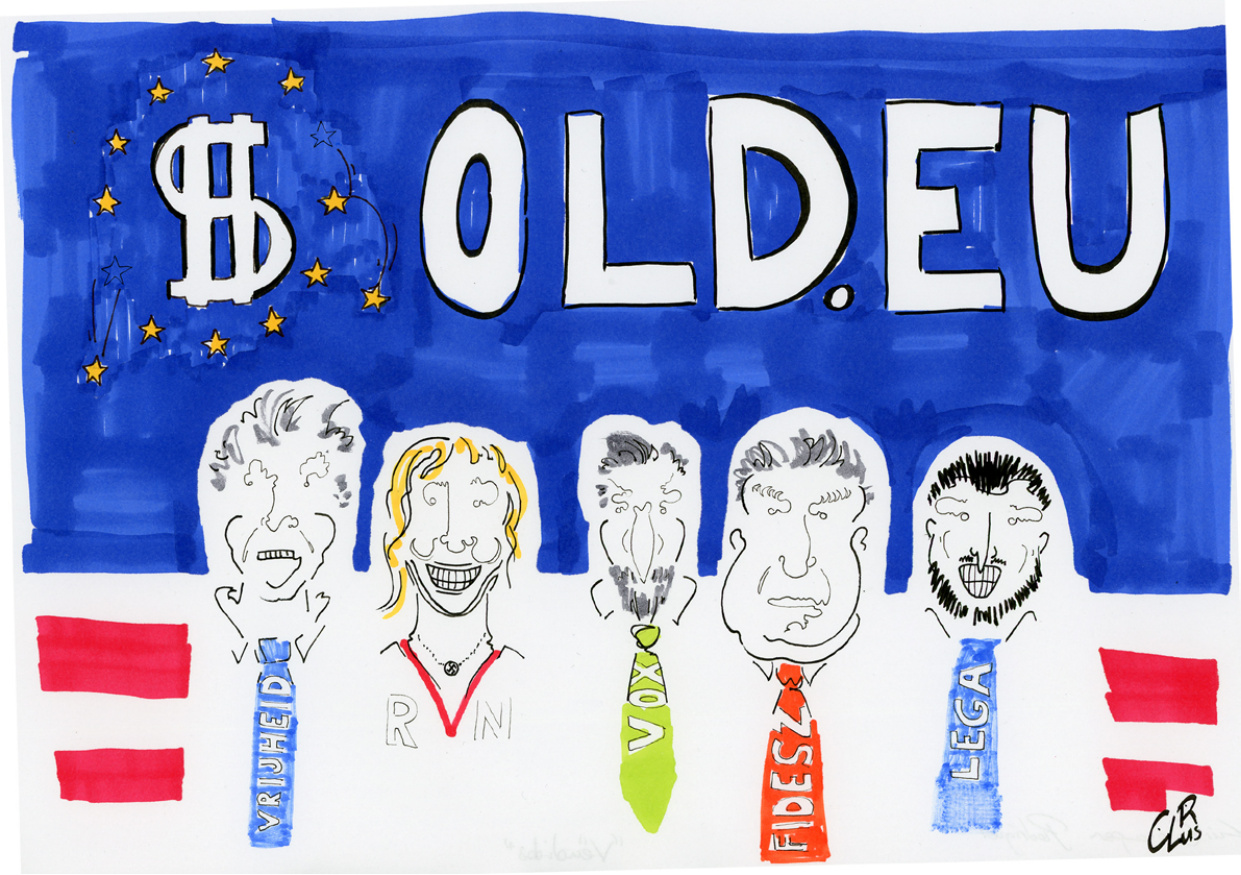 $OLD.EU
VRIJHEID
RN
VOX
FIDESZ
LEGA